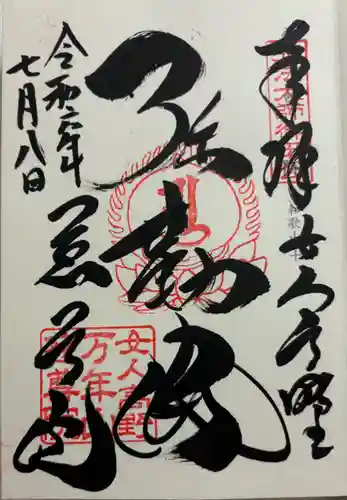 奉拝 女人高野
弥勒
令和元年
七月八日
慈尊院
女人高野
万年山
慈尊院